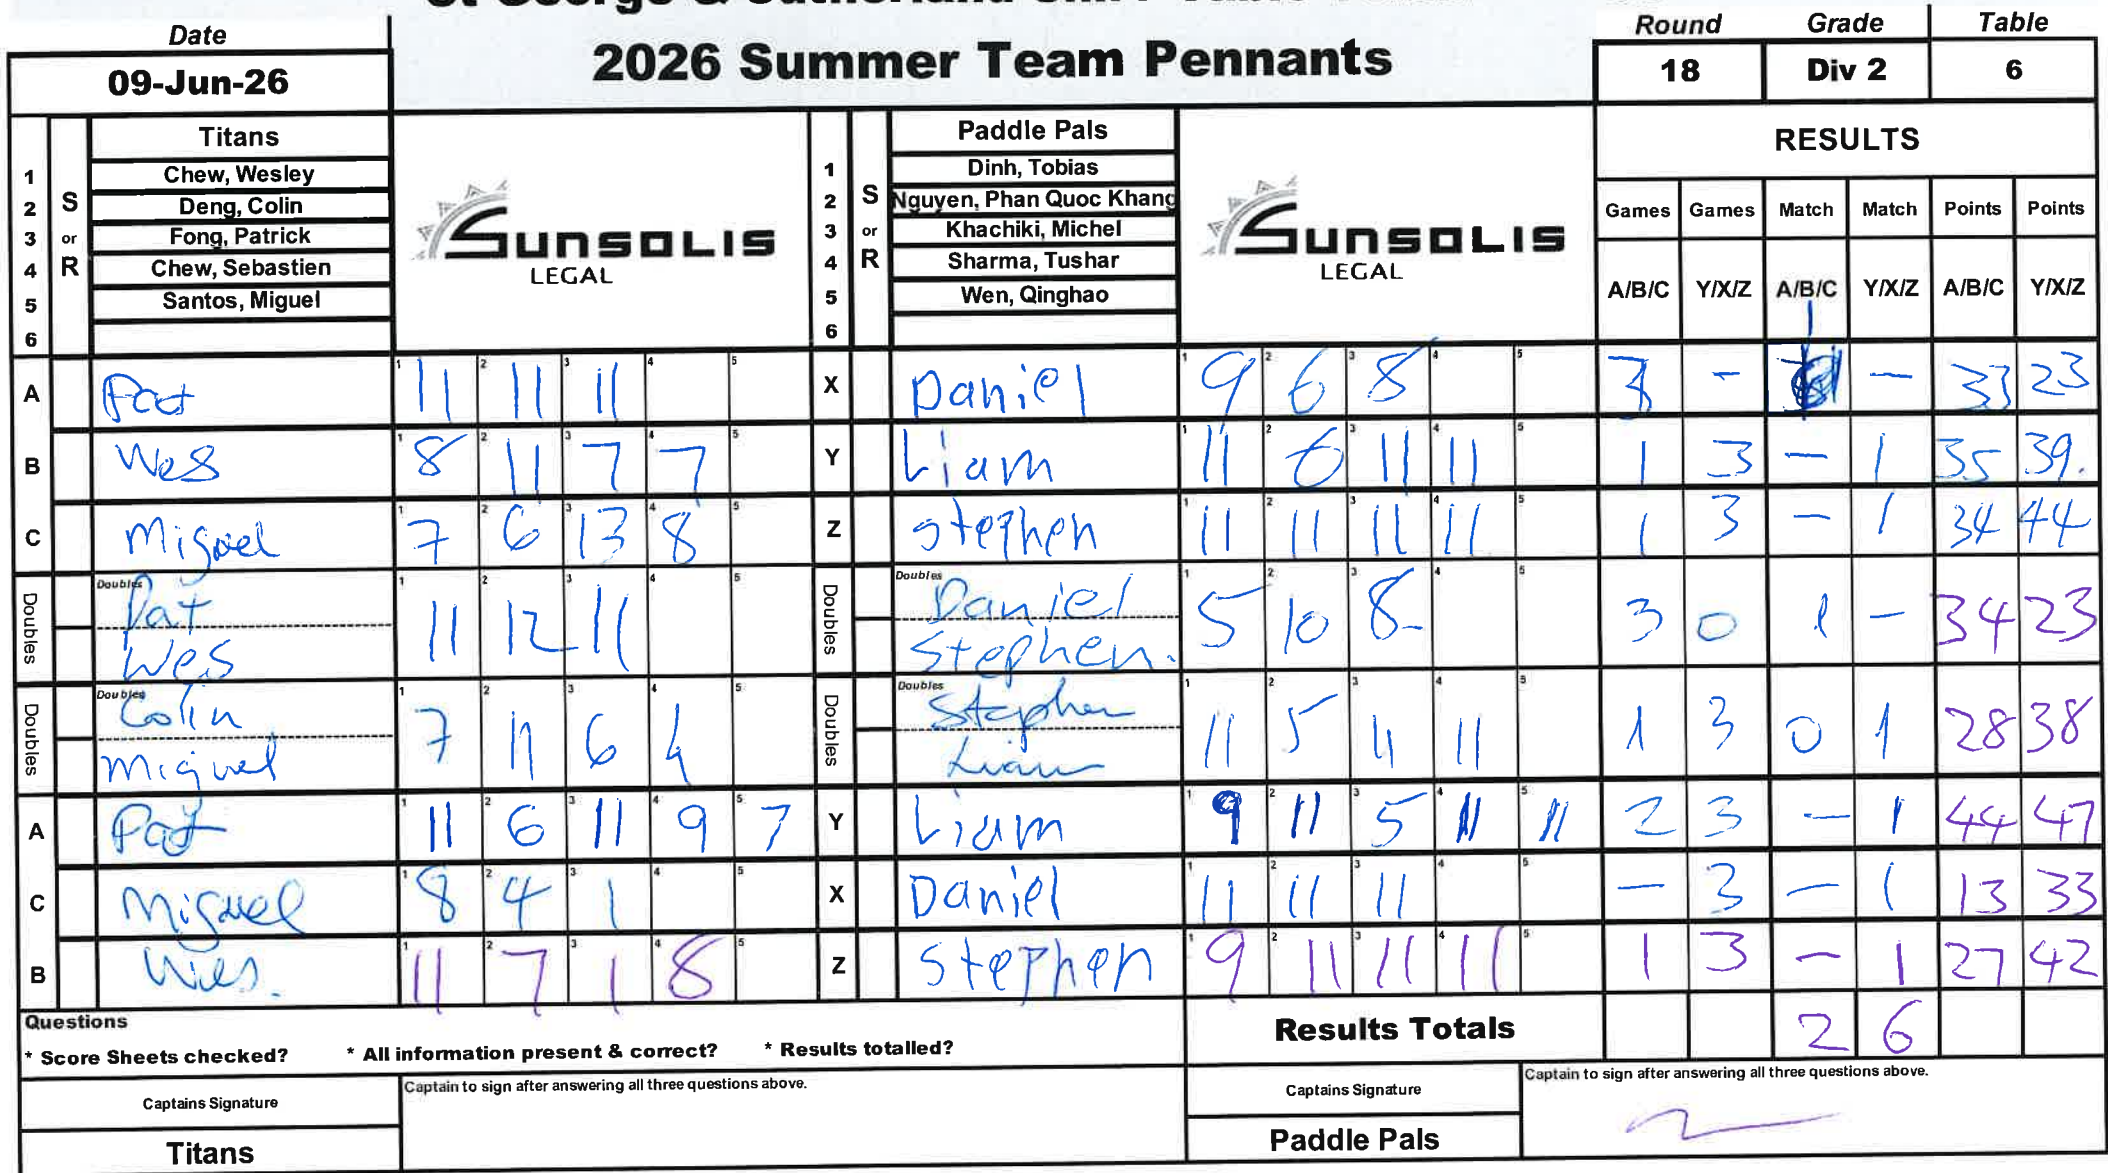 Date
09-Jun-26
2026 Summer Team Pennants
Round Grade Table
18 Div 2 6
1 2 3 4 5 6
S or R
Titans
Chew, Wesley
Deng, Colin
Fong, Patrick
Chew, Sebastien
Santos, Miguel
SUNSOLIS
LEGAL
1 2 3 4 5 6
S or R
Paddle Pals
Dinh, Tobias
Nguyen, Phan Quoc Khang
Khachiki, Michel
Sharma, Tushar
Wen, Qinghao
SUNSOLIS
LEGAL
RESULTS
Games Games Match Match Points Points
A/B/C Y/X/Z A/B/C Y/X/Z A/B/C Y/X/Z
A Pat 11 11 11 X Daniel 9 6 8 3 - - 33 23
B Wes 8 11 7 7 Y Liam 11 6 11 11 1 3 - 1 35 39.
C Miguel 7 6 13 8 Z Stephen 11 11 11 11 1 3 - 1 34 44
Doubles Doubles Pat Wes 11 12 11 Doubles Doubles Daniel Stephen. 5 10 8 3 0 1 - 34 23
Doubles Doubles Colin Miguel 7 11 6 4 Doubles Doubles Stephen Liam 11 5 11 11 1 3 0 1 28 38
A Pat 11 6 11 9 7 Y Liam 9 11 5 11 11 2 3 - 1 44 47
C Miguel 8 4 1 X Daniel 11 11 11 - 3 - 1 13 33
B Wes. 11 7 1 8 Z Stephen 9 11 11 11 1 3 - 1 27 42
Questions
* Score Sheets checked? * All information present & correct? * Results totalled?
Results Totals 2 6
Captains Signature
Captain to sign after answering all three questions above.
Captains Signature
Captain to sign after answering all three questions above.
Titans
Paddle Pals